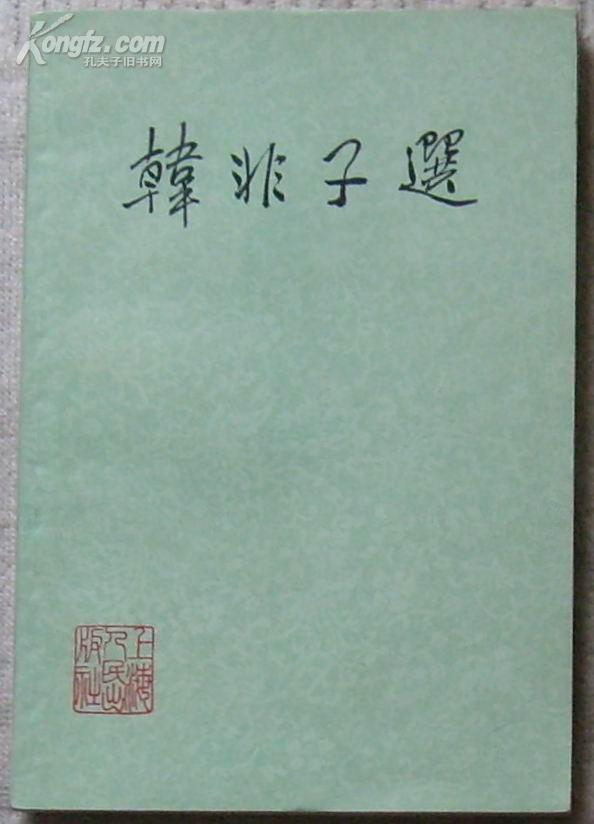 Kongfz.com
孔夫子旧书网
韓非子選
上海
人民出
版社